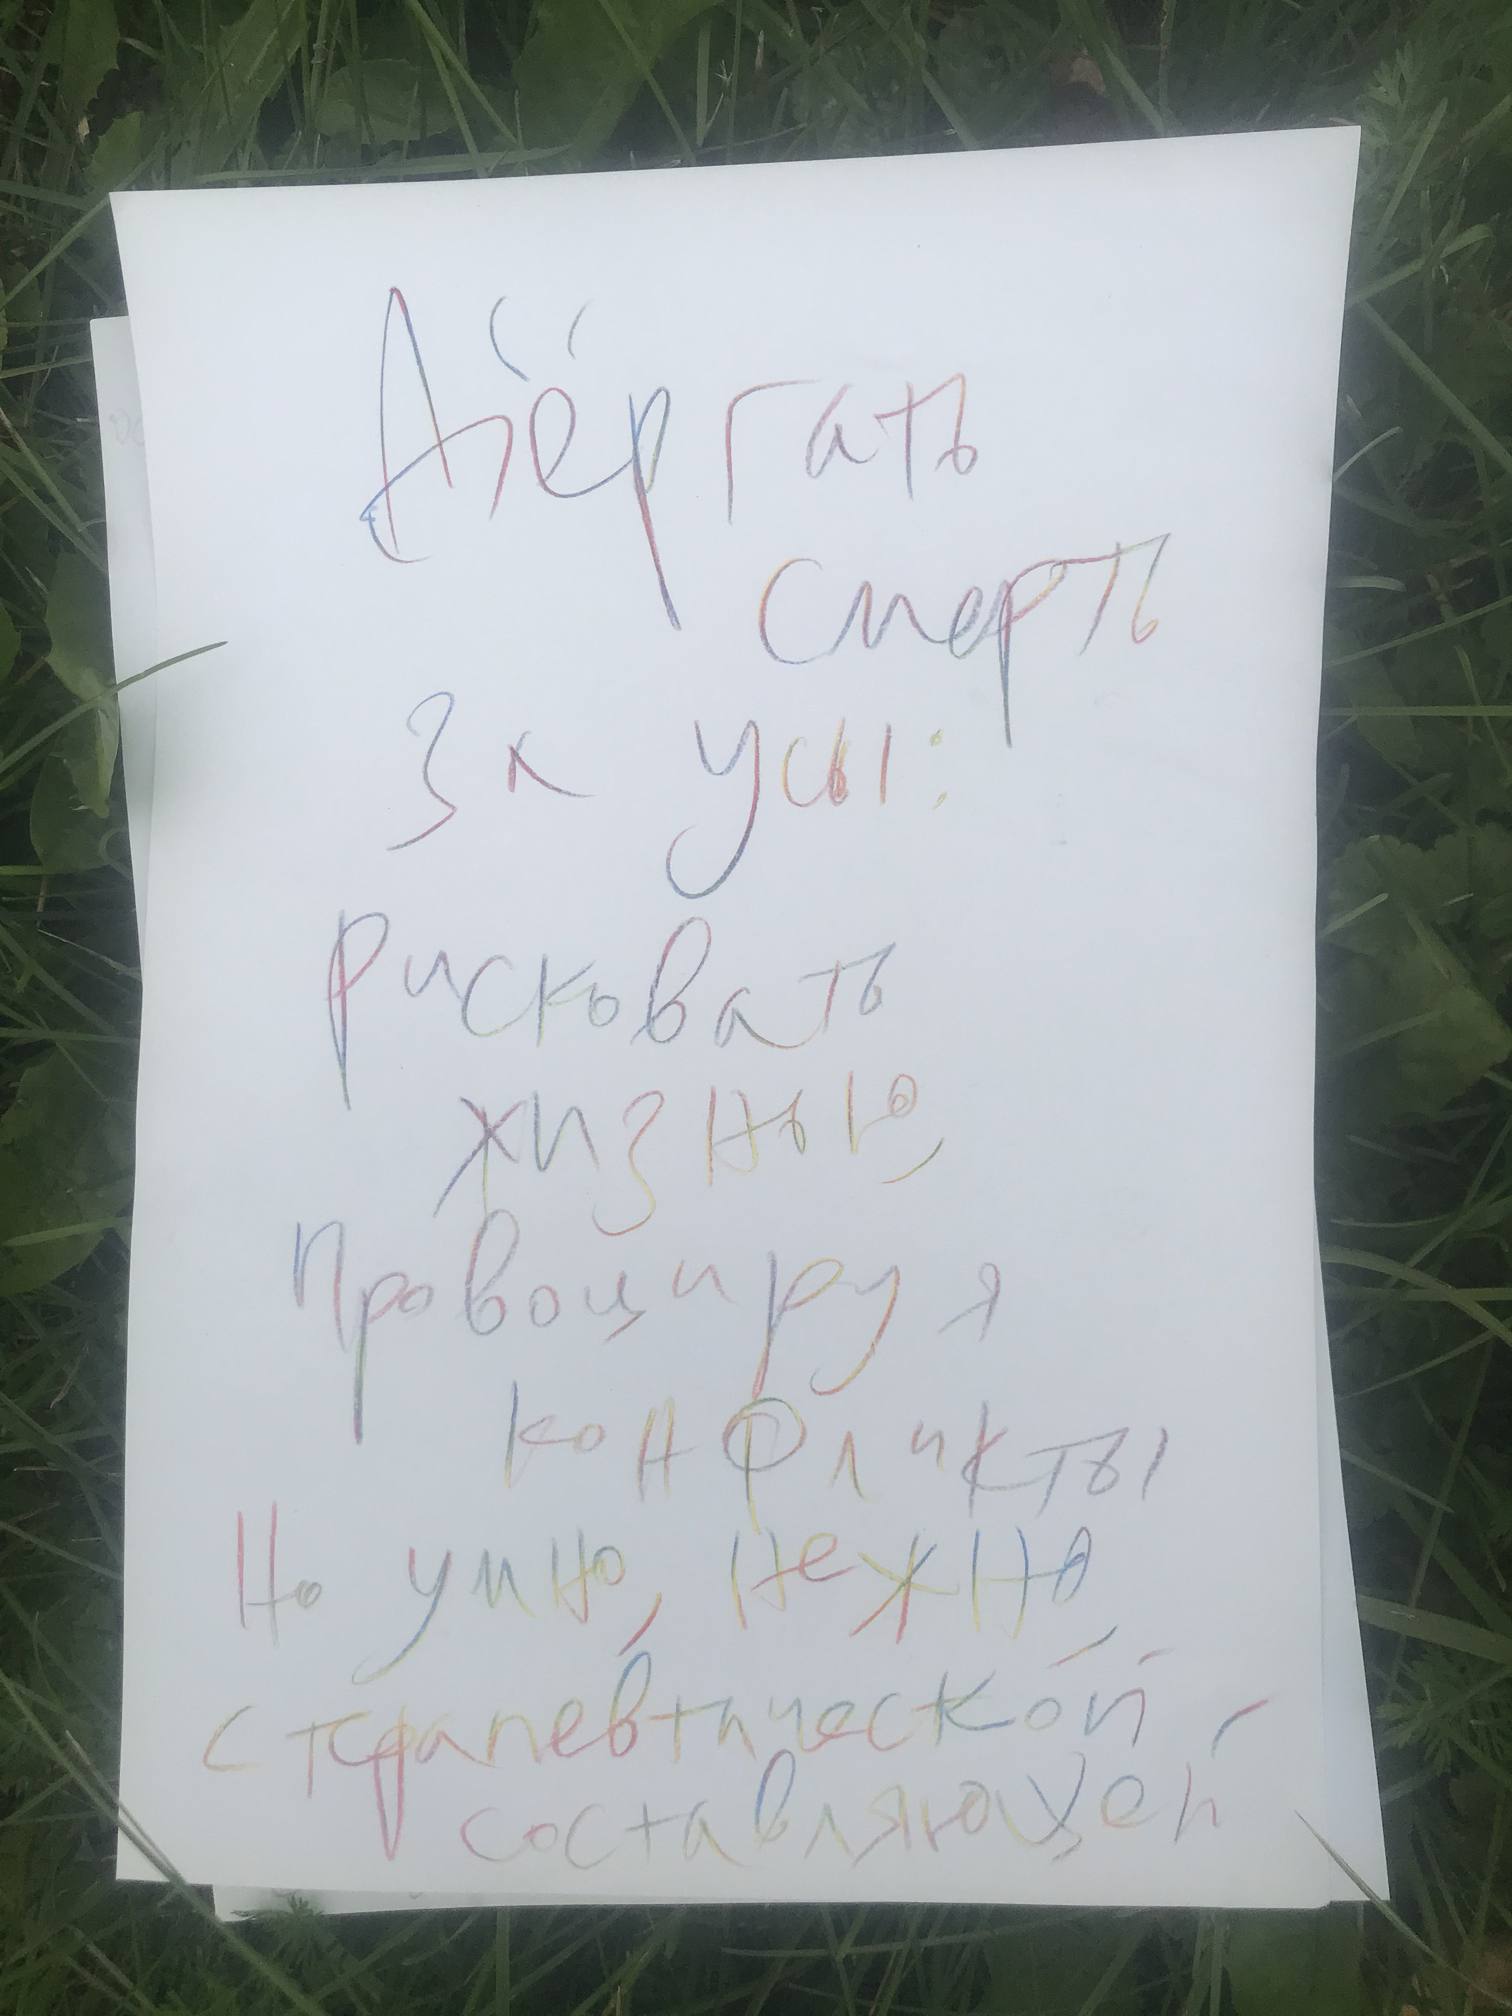 Дёргать
смерть
за усы:
рисковать
жизнью,
провоцируя
конфликты
Но умно, нежно,
с терапевтической
составляющей